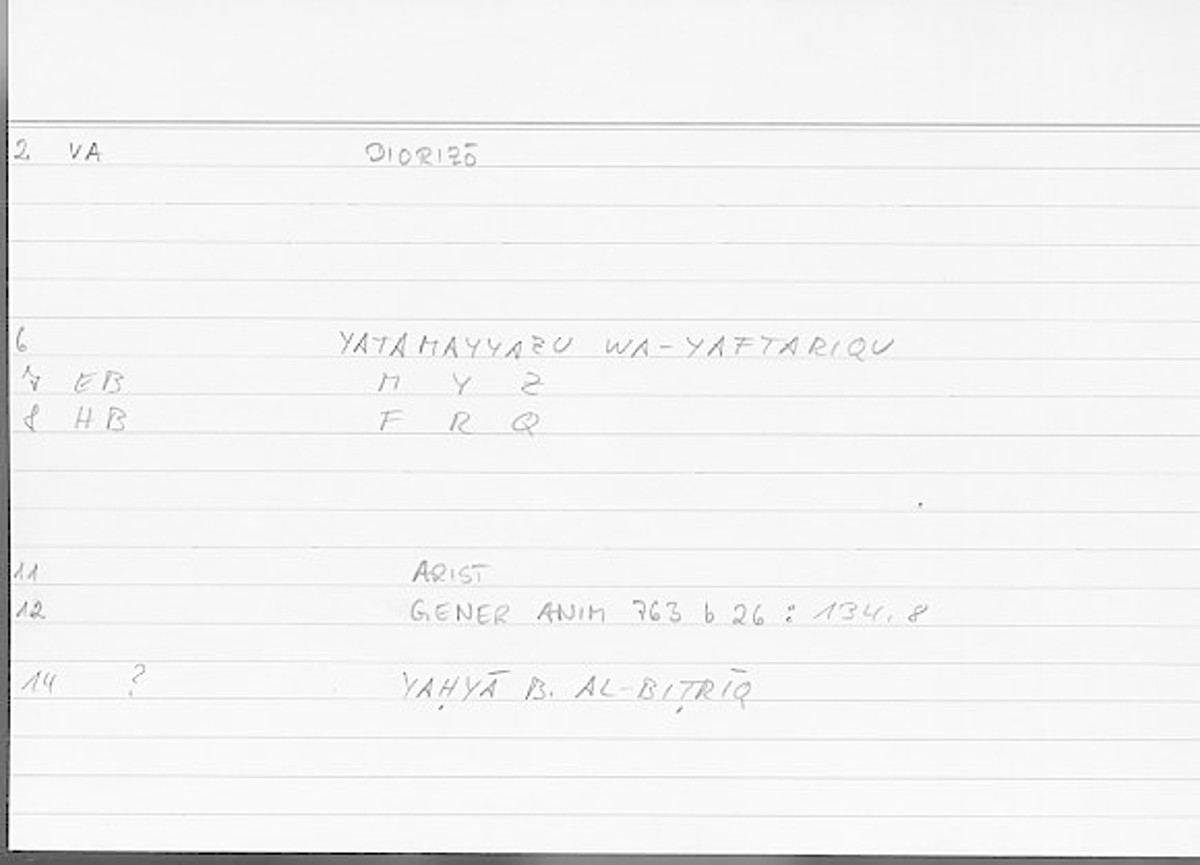 2 VA DIORIZŌ
6 YATAMAYYAZU WA-YAFTARIQU
7 EB M Y Z
8 HB F R Q
11 ARIST
12 GENER ANIM 763 b 26 : 134.8
14 ? YAḤYĀ B. AL-BIṬRĪQ